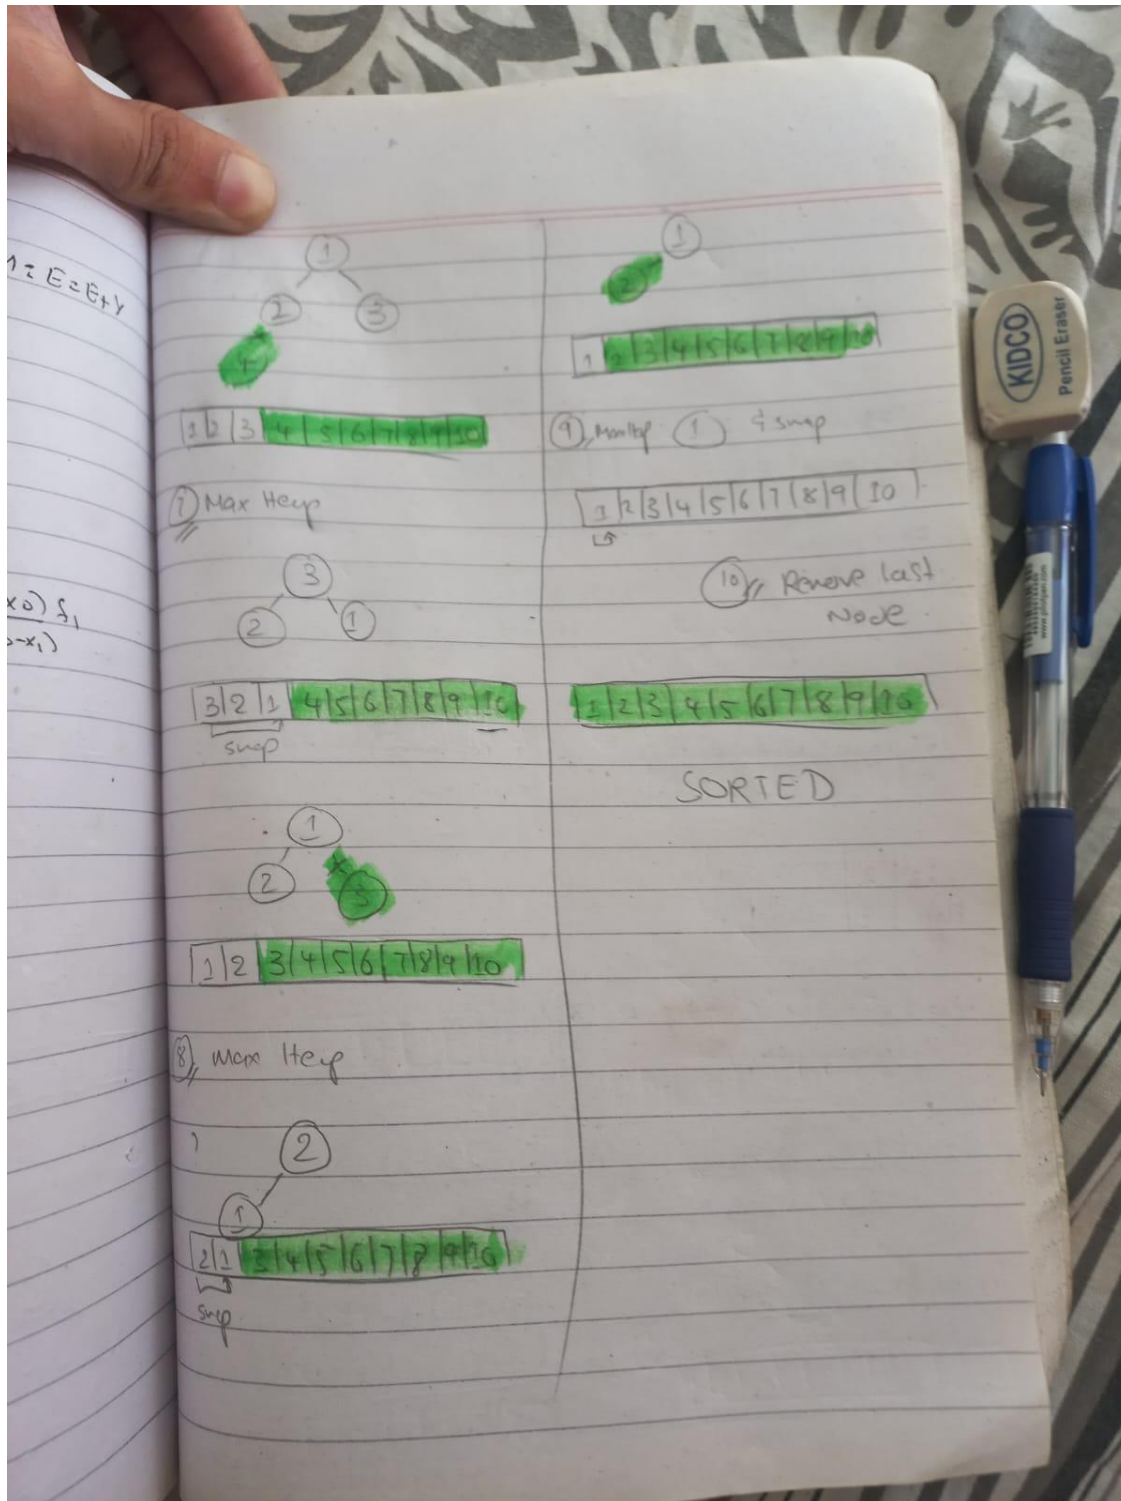 1 = E = E + Y
x0) f1
0-x1)
1
2 3
4
1 2 3 4 5 6 7 8 9 10
7 Max Heap
3
2 1
3 2 1 4 5 6 7 8 9 10
swap
1
2 3
1 2 3 4 5 6 7 8 9 10
8 Max Heap
2
1
2 1 3 4 5 6 7 8 9 10
swap
1
2
1 2 3 4 5 6 7 8 9 10
9 1 & swap
1 2 3 4 5 6 7 8 9 10
10 Remove last
Node.
1 2 3 4 5 6 7 8 9 10
SORTED
KIDCO
Pencil Eraser